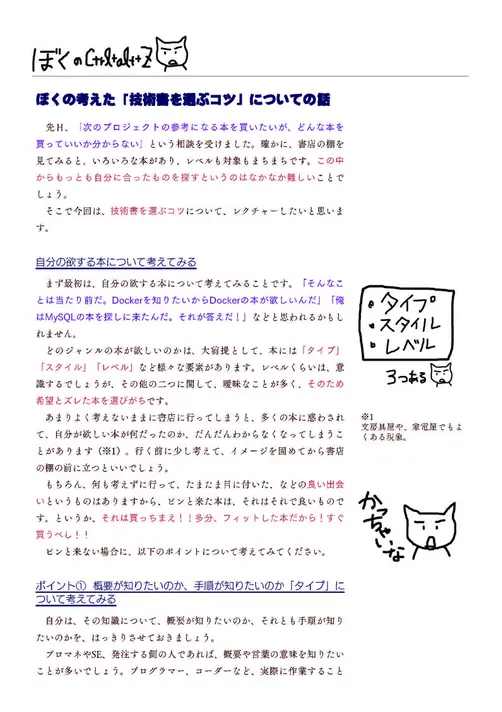 ぼくのCtrl+alt+Z
ぼくの考えた「技術書を選ぶコツ」についての話
先日、「次のプロジェクトの参考になる本を買いたいが、どんな本を
買っていいか分からない」という相談を受けました。確かに、書店の棚を
見てみると、いろいろな本があり、レベルも対象もまちまちです。この中
からもっとも自分に合ったものを探すというのはなかなか難しいことで
しょう。
そこで今回は、技術書を選ぶコツについて、レクチャーしたいと思いま
す。
自分の欲する本について考えてみる
まず最初は、自分の欲する本について考えてみることです。「そんなこ
とは当たり前だ。Dockerを知りたいからDockerの本が欲しいんだ」「俺
はMySQLの本を探しに来たんだ。それが答えだ！」などと思われるかもし
れません。
どのジャンルの本が欲しいのかは、大前提として、本には「タイプ」
「スタイル」「レベル」など様々な要素があります。レベルくらいは、意
識するでしょうが、その他の二つに関して、曖昧なことが多く、そのため
希望とズレた本を選びがちです。
あまりよく考えないままに書店に行ってしまうと、多くの本に惑わされ
て、自分が欲しい本が何だったのか、だんだんわからなくなってしまうこ
とがあります（※1）。行く前に少し考えて、イメージを固めてから書店
の棚の前に立つといいでしょう。
もちろん、何も考えずに行って、たまたま目に付いた、などの良い出会
いというものはありますから、ピンと来た本は、それはそれで良いもので
す。というか、それは買っちまえ！！多分、フィットした本だから！すぐ
買うべし！！
ピンと来ない場合に、以下のポイントについて考えてみてください。
・タイプ
・スタイル
・レベル
3つある
※1
文房具屋や、家電屋でもよ
くある現象。
かっちゃいな
ポイント① 概要が知りたいのか、手順が知りたいのか「タイプ」に
ついて考えてみる
自分は、その知識について、概要が知りたいのか、それとも手順が知り
たいのかを、はっきりさせておきましょう。
プロマネやSE、発注する側の人であれば、概要や言葉の意味を知りたい
ことが多いでしょう。プログラマー、コーダーなど、実際に作業すること